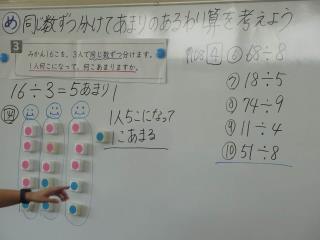 め 同じ数ずつ分けてあまりのあるわり算を考えよう
3
みかん16こを、3人で同じ数ずつ分けます。
1人何こになって、何こあまりますか。
16÷3=5あまり1
図
1人5こになって
1こあまる
P.108 4 ⑥ 68÷8
⑦ 18÷5
⑧ 74÷9
⑨ 11÷4
⑩ 51÷8